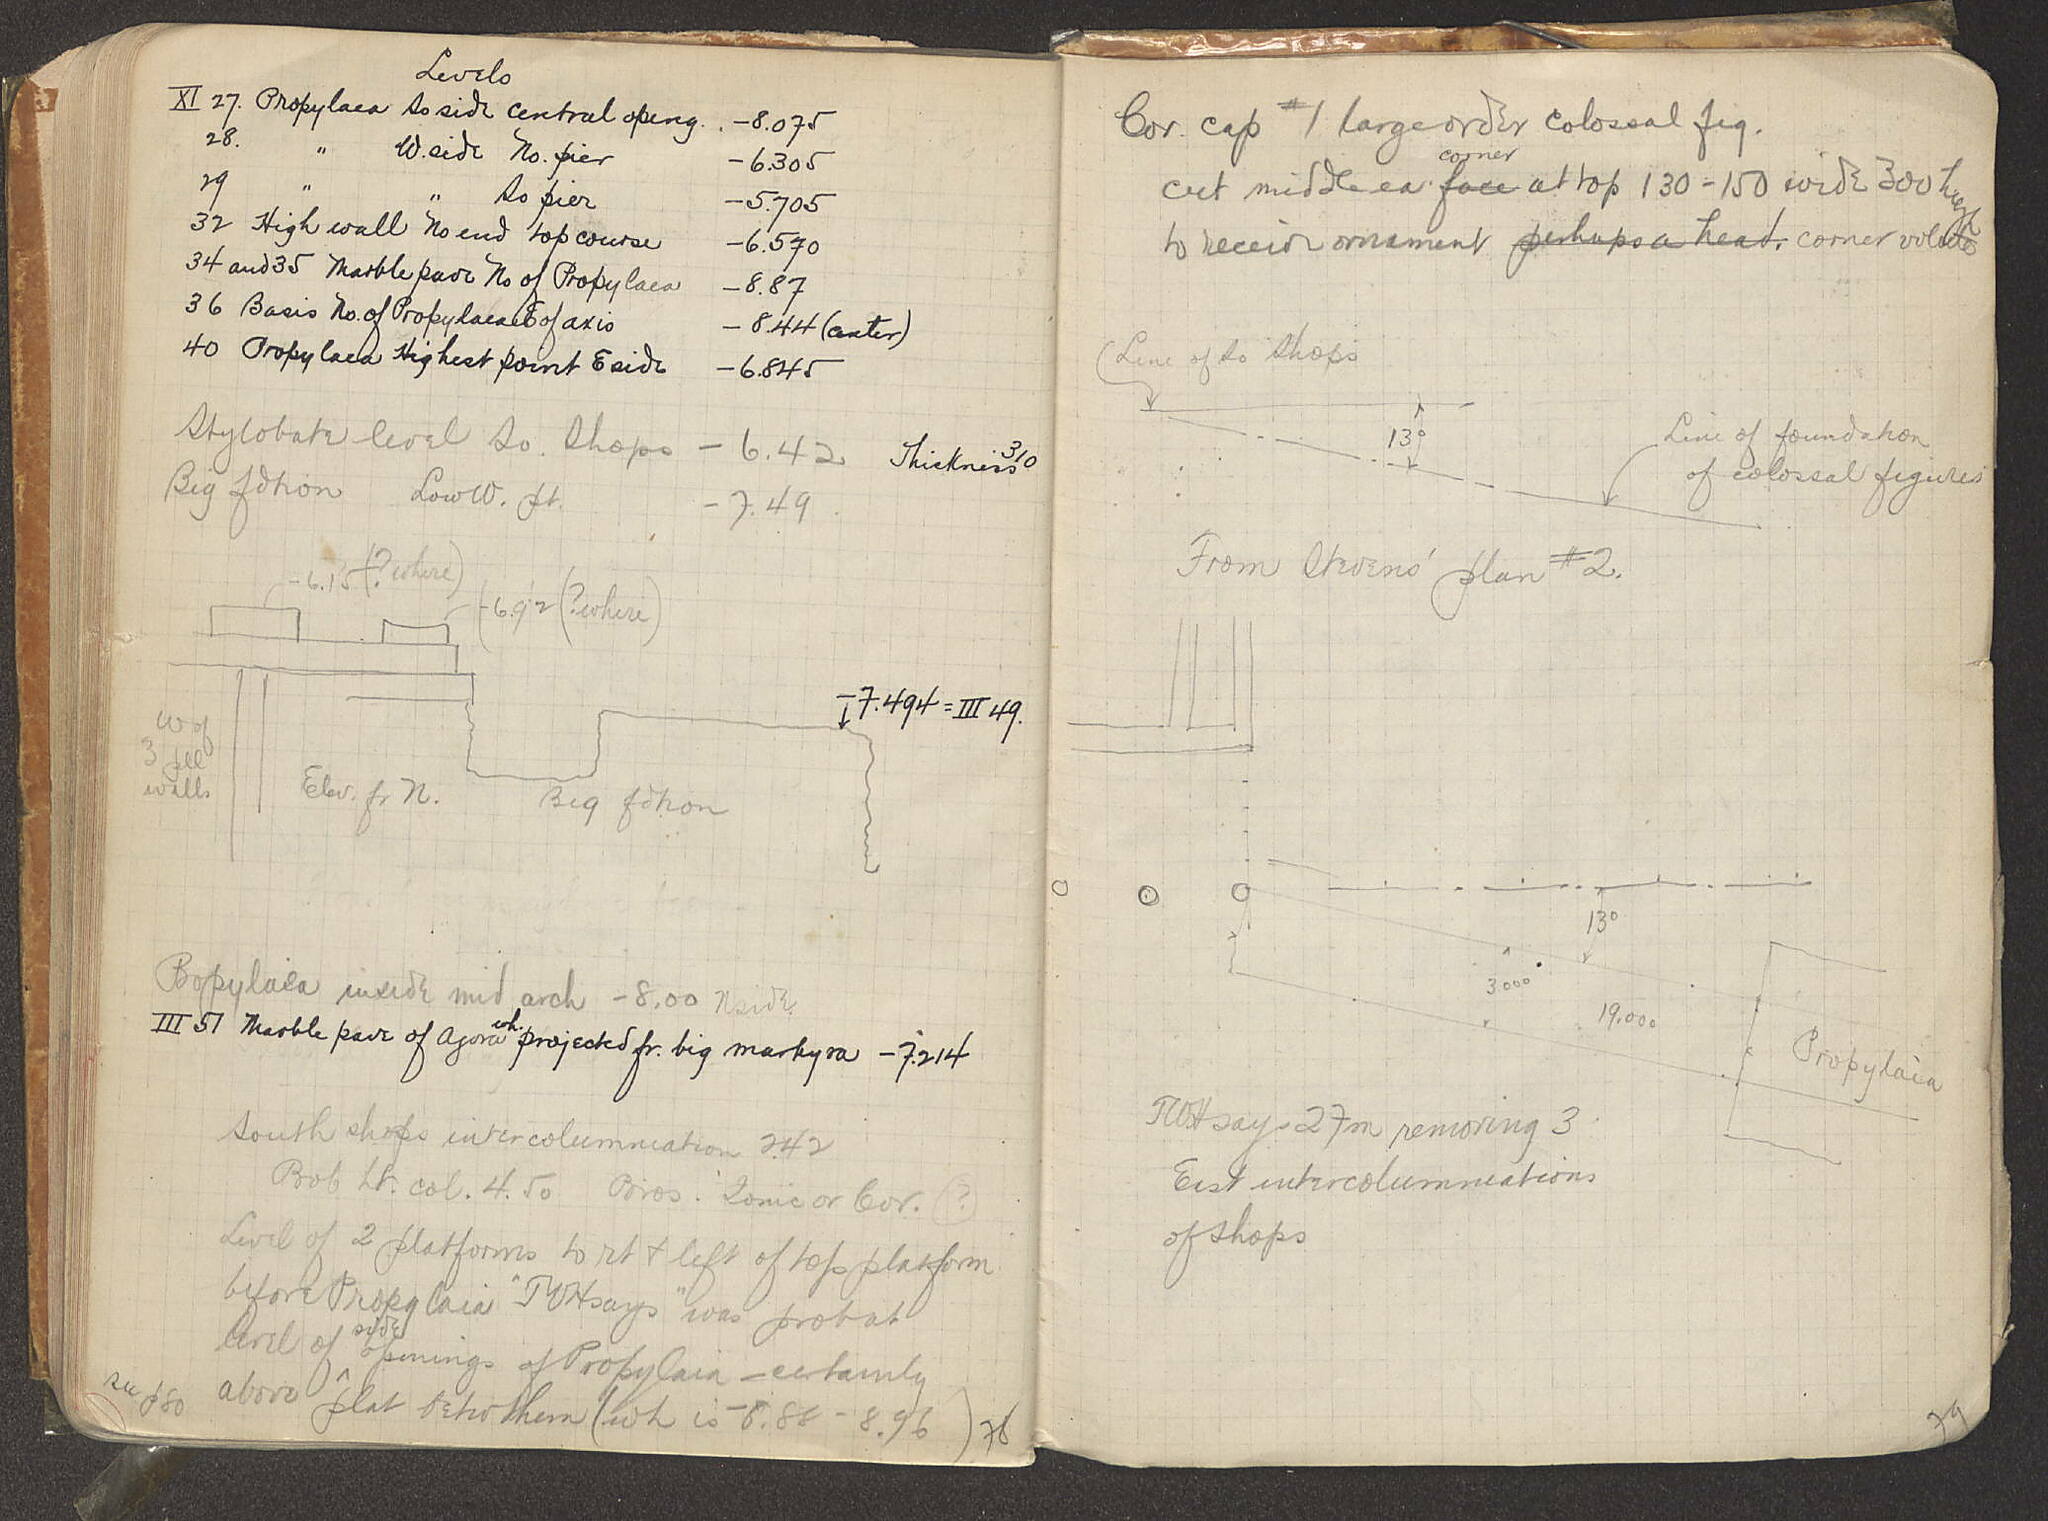 Levels
XI 27. Propylaea So side central openg. . -8.075
28. " W. side No. pier -6.305
29 " " So pier -5.705
32 High wall No end top course -6.570
34 and 35 Marble pave No of Propylaea -8.87
36 Basis No. of Propylaea E of axis -8.44 (center)
40 Propylaea Highest point E side -6.845
Stylobate level So. Shops - 6.42 Thickness 310
Big fdtion Low W. pt. - 7.49
-6.15 (? where)
-6.92 (? where)
-7.494 = III 49.
W of
3 pll
walls
Elev. fr N.
Big fdtion
Propylaea inside mid arch -8.00 N side.
III 51 Marble pave of Agora wh. projected fr. big markyra -7.214
South shops intercolumniation 2.42
Prob ht. col. 4.50 Pros. Ionic or Cor. (?)
Level of 2 platforms to rt + left of top platform
before Propylaia "TWH says" was prob at
level of side openings of Propylaia - certainly
above plat betw them (wh is -8.88 - 8.96)
see p 80
78
Cor. cap #1 large order colossal fig.
cut middle ea. face corner at top 130-150 wide 300 high
to receive ornament perhaps a head. corner volute
(Line of So Shops
13°
Line of foundation
of colossal figures
From Stevens' plan #2.
13°
3.000
19.000
Propylaia
TWH says 27m removing 3
East intercolumniations
of shops
79